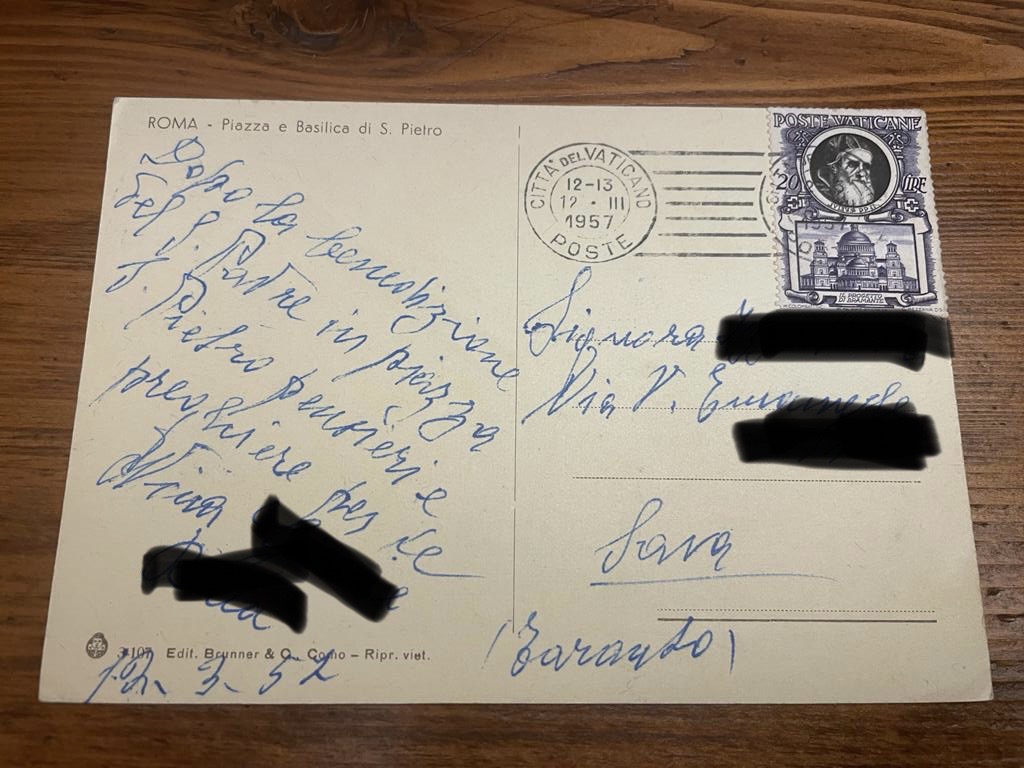 ROMA - Piazza e Basilica di S. Pietro
Dopo la benedizione
del S. Padre in piazza
S. Pietro pensieri e
preghiere per te
Nina
3107 Edit. Brunner & C., Como - Ripr. viet.
12. 3. 57
CITTA' DEL VATICANO
12-13
12 · III
1957
POSTE
POSTE VATICANE
20 LIRE
IVLIVS
IL PROGETTO
DI BRAMANTE
Signora
Via V. Emanuele
Sava
(Taranto)